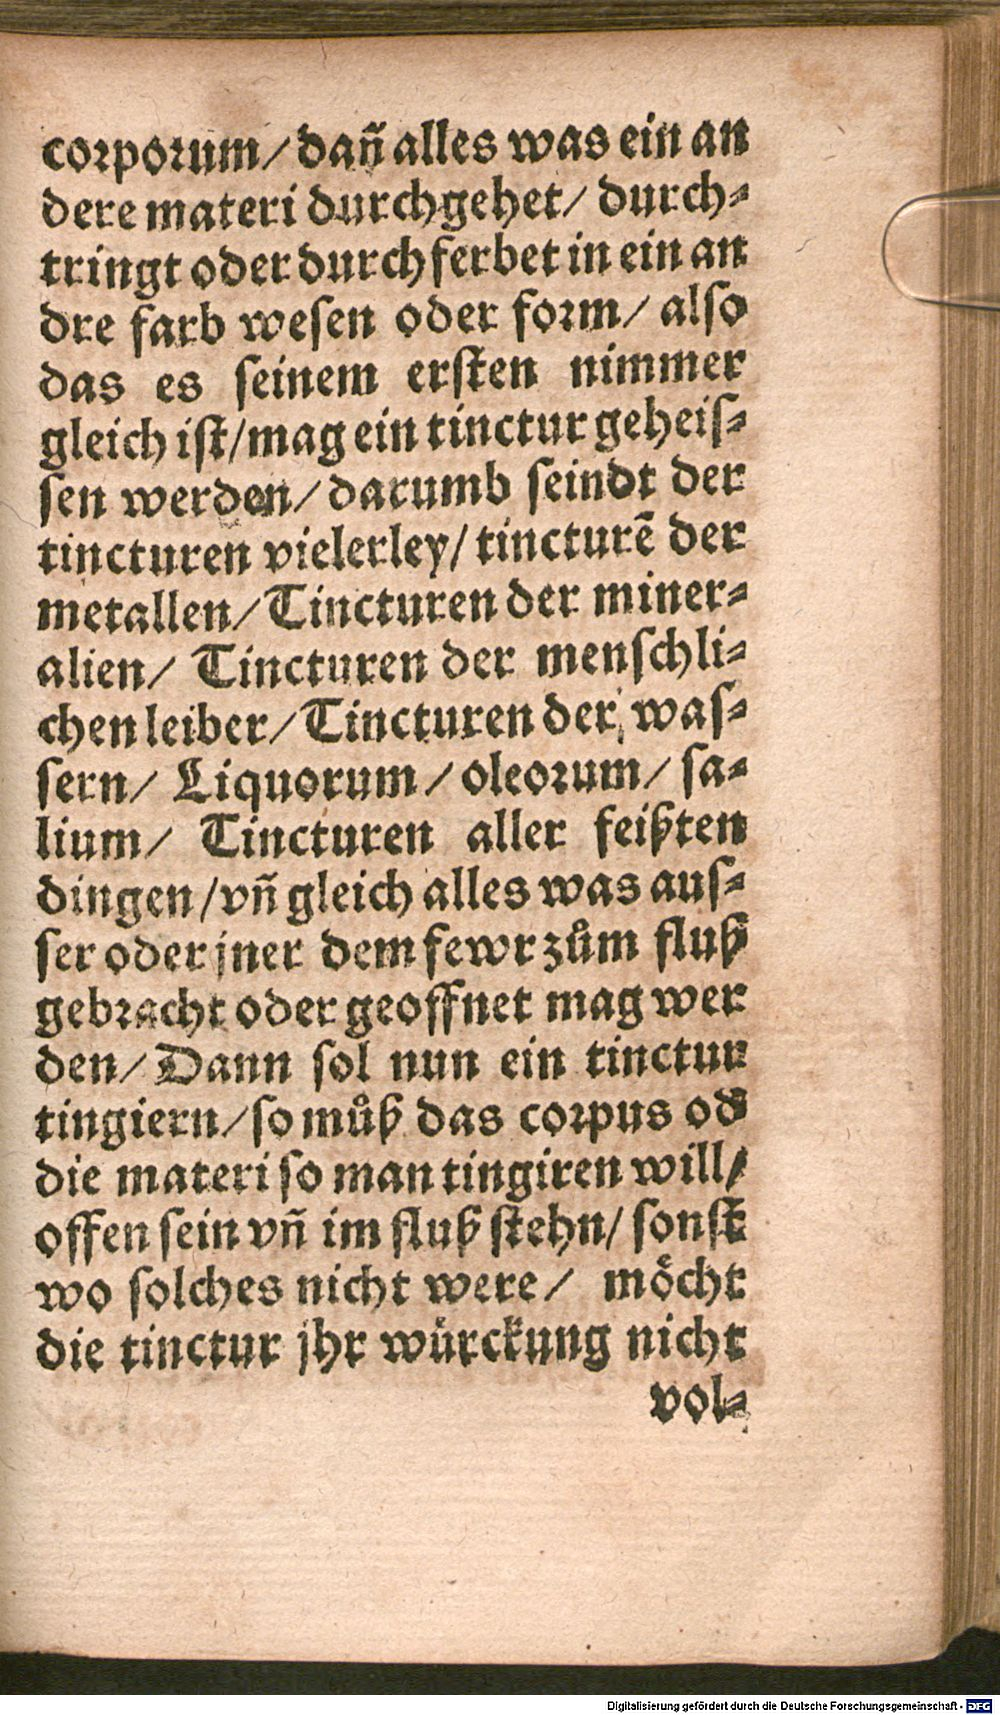 corporum/ dañ alles was ein an
dere materi durchgehet/ durch⸗
tringt oder durchferbet in ein an
dre farb wesen oder form/ also
das es seinem ersten nimmer
gleich ist/ mag ein tinctur geheis⸗
sen werden/ darumb seindt der
tincturen vielerley/ tincturē der
metallen/ Tincturen der miner⸗
alien/ Tincturen der menschli⸗
chen leiber/ Tincturen der was⸗
sern/ Liquorum/ oleorum/ sa⸗
lium/ Tincturen aller feißten
dingen/ vñ gleich alles was aus⸗
ser oder jner dem fewr zům fluß
gebracht oder geoffnet mag wer
den/ Dann sol nun ein tinctur
tingiern/ so můß das corpus od
die materi so man tingiren will/
offen sein vñ im fluß stehn/ sonst
wo solches nicht were/ möcht
die tinctur jhr würckung nicht
vol⸗
Digitalisierung gefördert durch die Deutsche Forschungsgemeinschaft - DFG